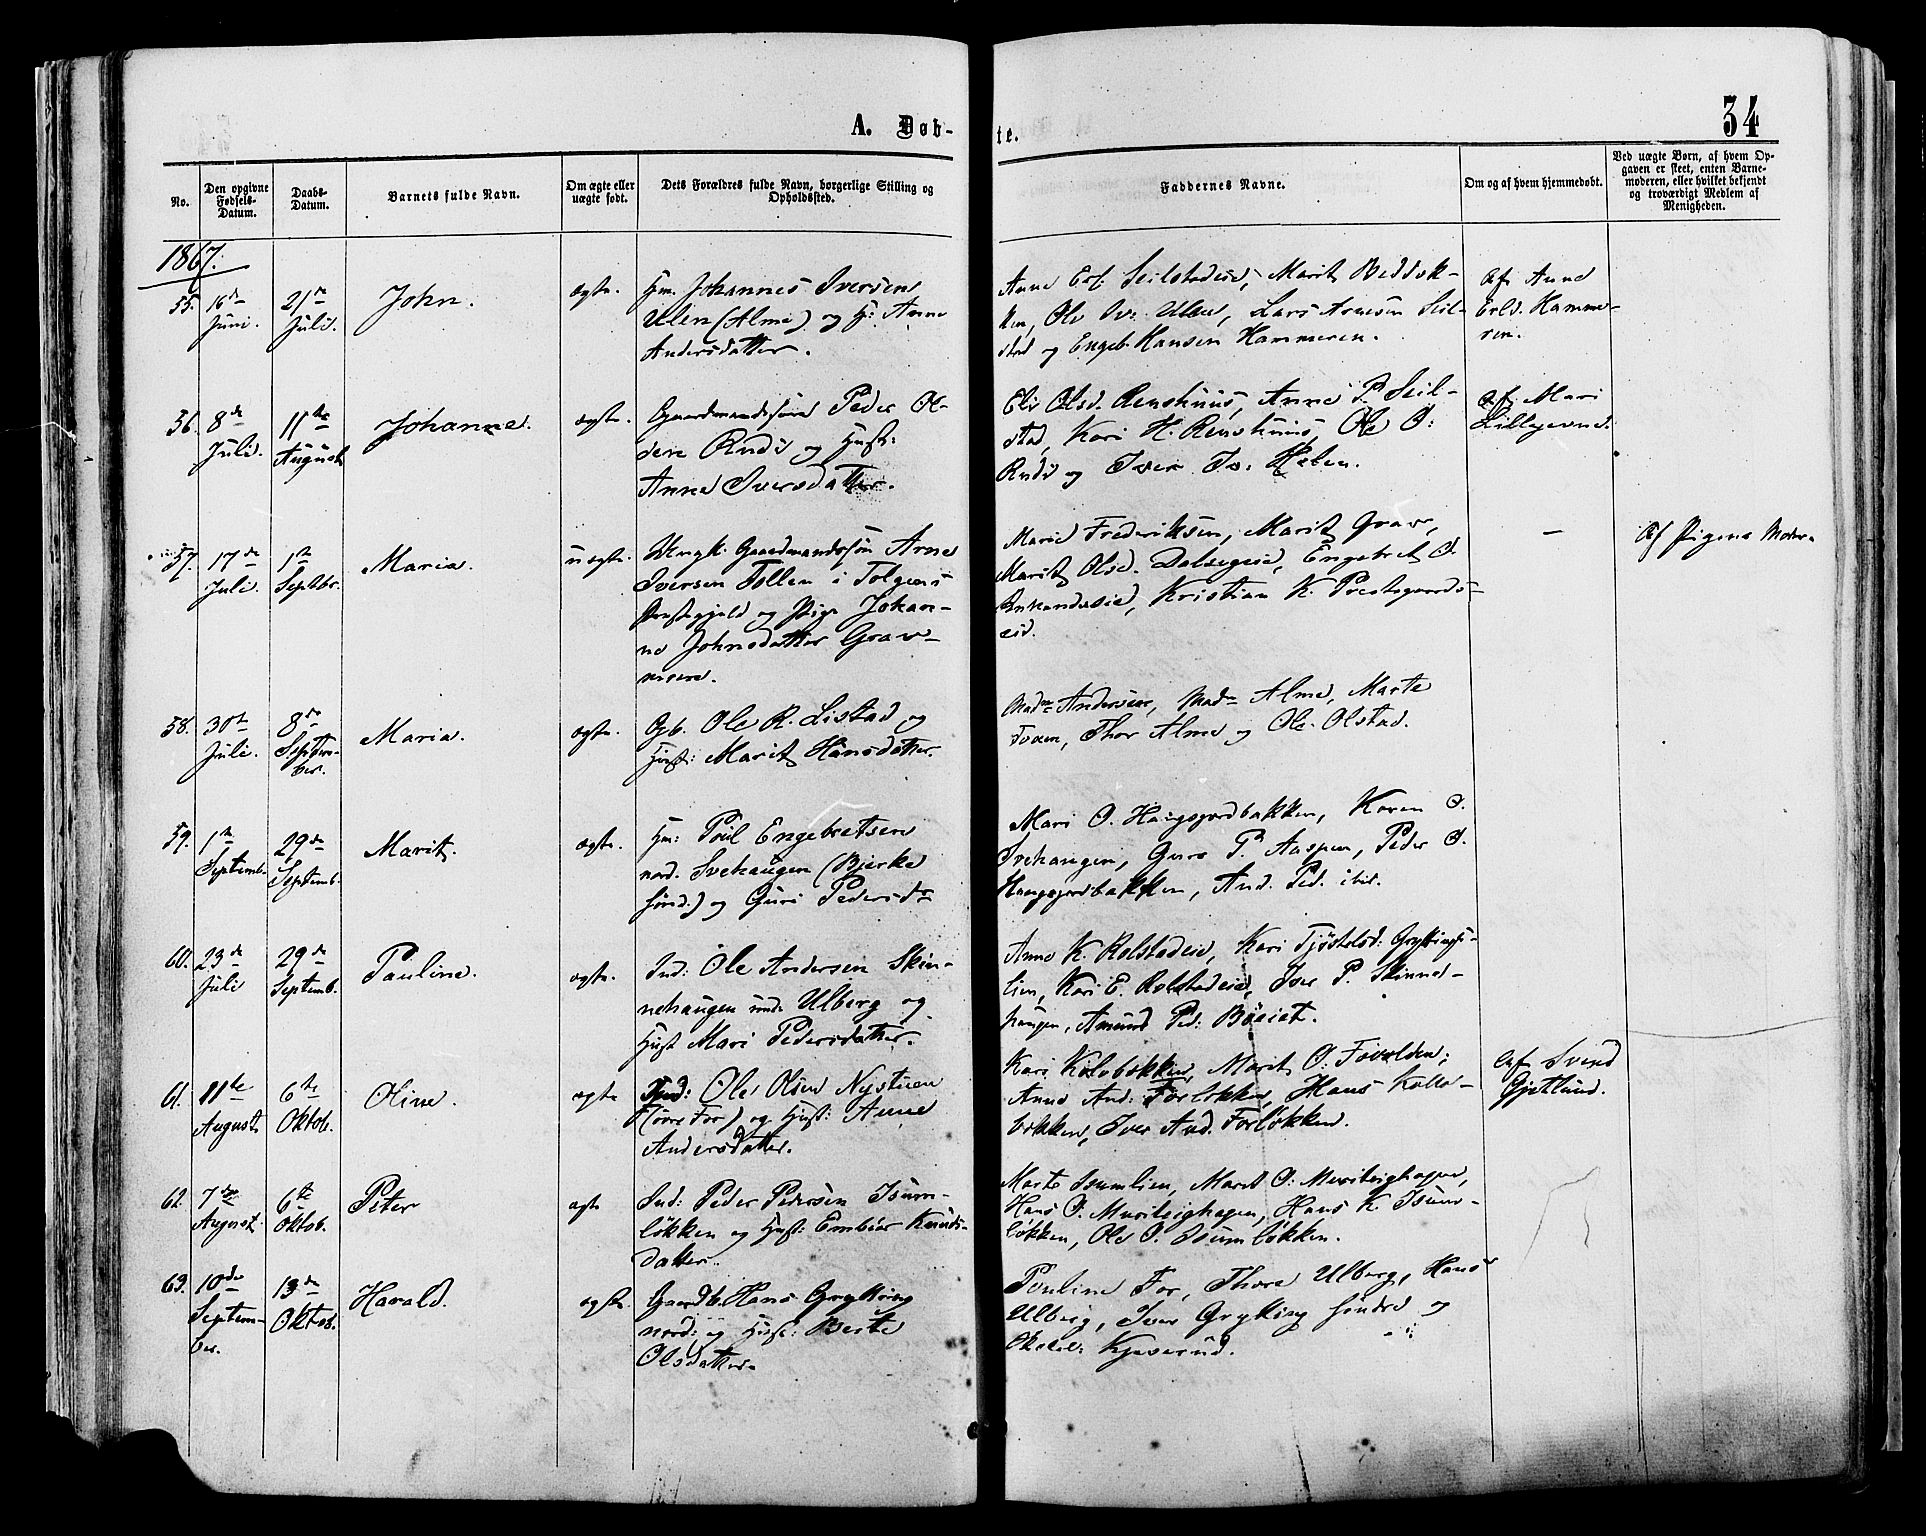 A. Døb-
te.
34
No.
Den opgivne Fødsels-Datum.
Daabs-Datum.
Barnets fulde Navn.
Om ægte eller uægte født.
Dets Forældres fulde Navn, borgerlige Stilling og Opholdssted.
Faddernes Navne.
Om og af hvem hjemmedøbt.
Ved uægte Børn, af hvem Op-
gaven er skeet, enten Barne-
moderen, eller hvilket bekjendt
og troværdigt Medlem af
Menigheden.
1867.
55. 16de Juni. 21de Juli. John. ægte.
Hm. Johannes Iversen
Ulen (Alme) og H: Anne
Andersdatter.
Anne Erl. Seilstadeie, Marit Beddok-
ken, Ole Iv. Ulen, Lars Arnesen Seil-
stad og Engeb. Hansen Hammeren.
Af Anne
Erld. Hamme-
ren.
56. 8de Juli. 11te August Johanne. ægte.
Gaardmandssøn Peder Ol-
sen Rudi og Hust:
Anne Iversdatter.
Eli Olsd. Renshuus, Anne P. Seil-
stad, Kari H. Renshuus, Ole O:
Rudi og Iver Iv:
Af Mari
57. 17de Juli. 1ste Septbr. Maria. uægte.
Ungk. Gaardmandssøn Arne
Iversen Tollen i Tolgens
Præstegjeld og Pige Johan-
ne Johnsdatter Grav-
Marie Frederiksen, Marit Grav,
Marit Olsd. Dalsegeie, Engebret O.
Kristian K. Prestegaards-
eie.
–
Af Pigens Moder
58. 30te Juli. 8de Septem-
ber. Maria. ægte.
Gb. Ole R. Listad og
Hust: Marit Hansdatter.
Madm Andersen, Madm Alme, Marte
Foxen, Thor Alme og Ole Olstad.
59. 1ste Septemb. 29de Septemb. Marit. ægte.
Hm: Poul Engebretsen
nord. Svehaugen (Bjerke
sønd.) og Guri Pedersdr
Mari O. Haugsgardbakken, Karen O.
Svehaugen, Guro P. Aaspen, Peder O.
Haugsgardbakken, And. Ped. ibid.
60. 23de Juli 29de Septemb. Pauline. ægte.
Ind: Ole Andersen Skin-
nehaugen und. Ulberg og
Hust Mari Pedersdatter.
Anne K. Rolstadeie, Kari Tjøstelsd: Gryttingli-
lien, Kari E. Rolstadeie, Iver P. Skinne-
haugen, Amund Ped: Bøeiet.
61. 11te August 6te Oktob. Oline. ægte
Ind: Ole Olsen Nystuen
(øvre For) og Hust: Anne
Andersdatter.
Kari Kolobækken, Marit O: Fovolden,
Anne And: Forløkken, Hans Kollo-
bækken, Iver And. Forløkken.
Af Svend
Gjetlund.
62. 7de August. 6te Oktob. Peter ægte
Ind: Peder Pedersen Isum-
løkken og Hust: Embiør Knuds-
datter.
Marte Isumlien, Marit O: Muriteighagen,
Hans O. Muriteighagen, Hans K. Isum-
løkken, Ole O. Isumløkken.
63. 10de Septem-
ber. 13de Oktob. Harald. ægte.
Gaardb. Hans Grytting
nord: og Hust: Berte
Olsdatter
Pouline For, Thora Ulberg, Hans
Ulberg, Iver Grytting søndre og
Kjæserud.